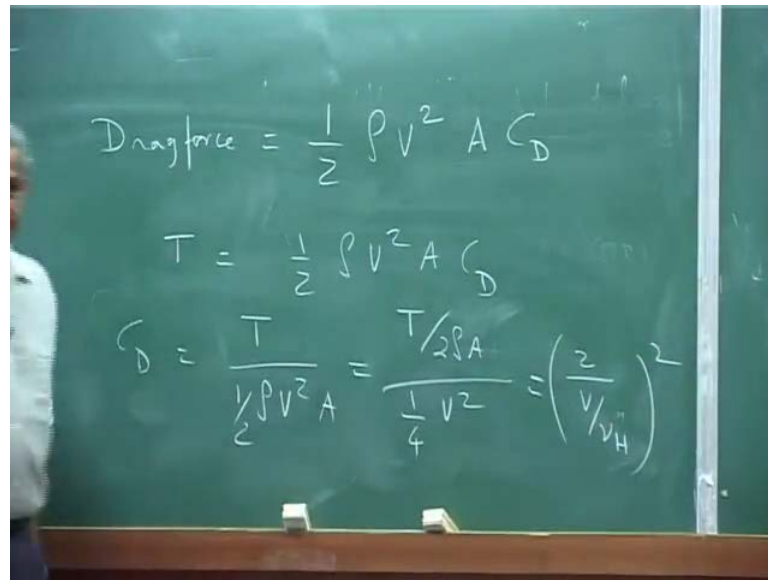 Dragforce = 1/2 ρV² A C_D
T = 1/2 ρV² A C_D
C_D = T / (1/2 ρV² A) = (T/2ρA) / (1/4 V²) = (2 / (V/ν_H))²